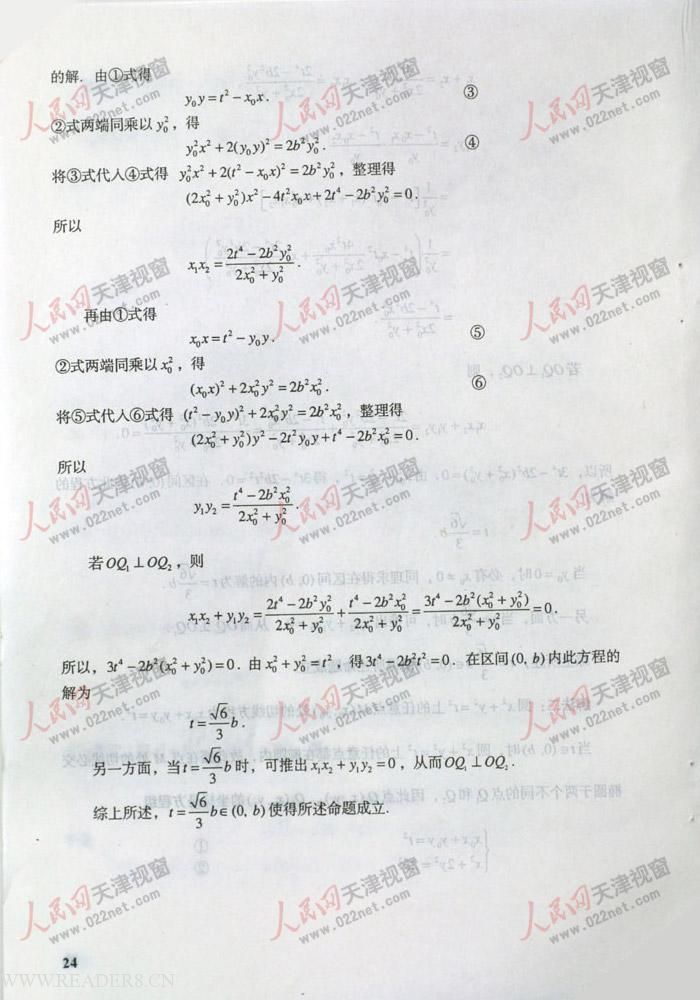 的解. 由①式得
y₀y = t² − x₀x. ③
②式两端同乘以 y₀², 得
y₀²x² + 2(y₀y)² = 2b²y₀². ④
将③式代人④式得 y₀²x² + 2(t² − x₀x)² = 2b²y₀², 整理得
(2x₀² + y₀²)x² − 4t²x₀x + 2t⁴ − 2b²y₀² = 0.
所以
x₁x₂ = (2t⁴ − 2b²y₀²)/(2x₀² + y₀²).
再由①式得
x₀x = t² − y₀y. ⑤
②式两端同乘以 x₀², 得
(x₀x)² + 2x₀²y² = 2b²x₀². ⑥
将⑤式代人⑥式得 (t² − y₀y)² + 2x₀²y² = 2b²x₀², 整理得
(2x₀² + y₀²)y² − 2t²y₀y + t⁴ − 2b²x₀² = 0.
所以
y₁y₂ = (t⁴ − 2b²x₀²)/(2x₀² + y₀²).
若OQ₁⊥OQ₂, 则
x₁x₂ + y₁y₂ = (2t⁴ − 2b²y₀²)/(2x₀² + y₀²) + (t⁴ − 2b²x₀²)/(2x₀² + y₀²) = (3t⁴ − 2b²(x₀² + y₀²))/(2x₀² + y₀²) = 0.
所以, 3t⁴ − 2b²(x₀² + y₀²) = 0. 由 x₀² + y₀² = t², 得3t⁴ − 2b²t² = 0. 在区间(0, b)内此方程的
解为
t = (√6/3)b.
另一方面, 当 t = (√6/3)b 时, 可推出 x₁x₂ + y₁y₂ = 0, 从而OQ₁⊥OQ₂.
综上所述, t = (√6/3)b ∈ (0, b) 使得所述命题成立.
24
人民网天津视窗
www.022net.com
WWW.READER8.CN